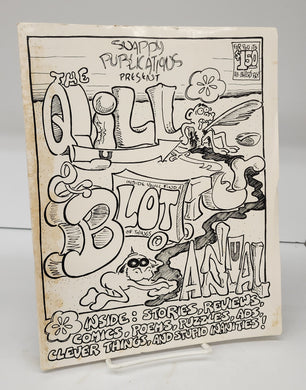 SNAPPY
PUBLICATIONS
PRESENT
THE
QUILL
&
BLOT
ANUAL
INSIDE: STORIES, REVIEWS,
COMICS, POEMS, PUZZLES, ADS,
CLEVER THINGS, AND STUPID INANITIES!
$1.50